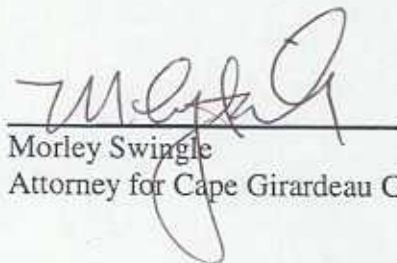 Morley Swingle
Attorney for Cape Girardeau C